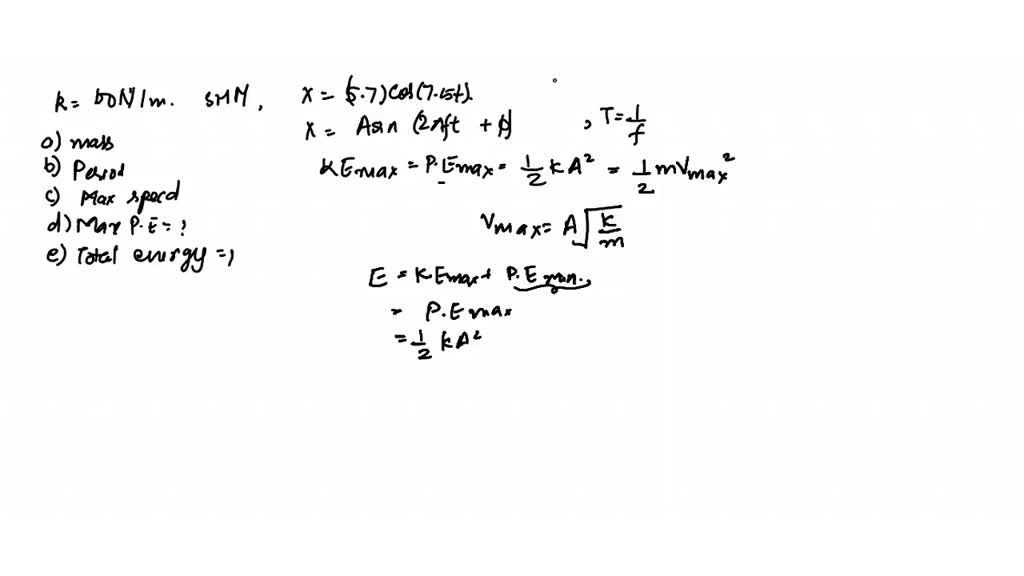 k = 50 N/m. SHM, x = (5.7) cos(7.15t).
x = A sin (2πft + φ) , T = 1/f
a) mass
b) Period
c) Max speed
d) Max P.E = ?
e) Total energy = ?
KEmax = P.Emax = 1/2 kA² = 1/2 mVmax²
Vmax = A√(k/m)
E = KEmax + P.Emin.
= P.Emax
= 1/2 kA²